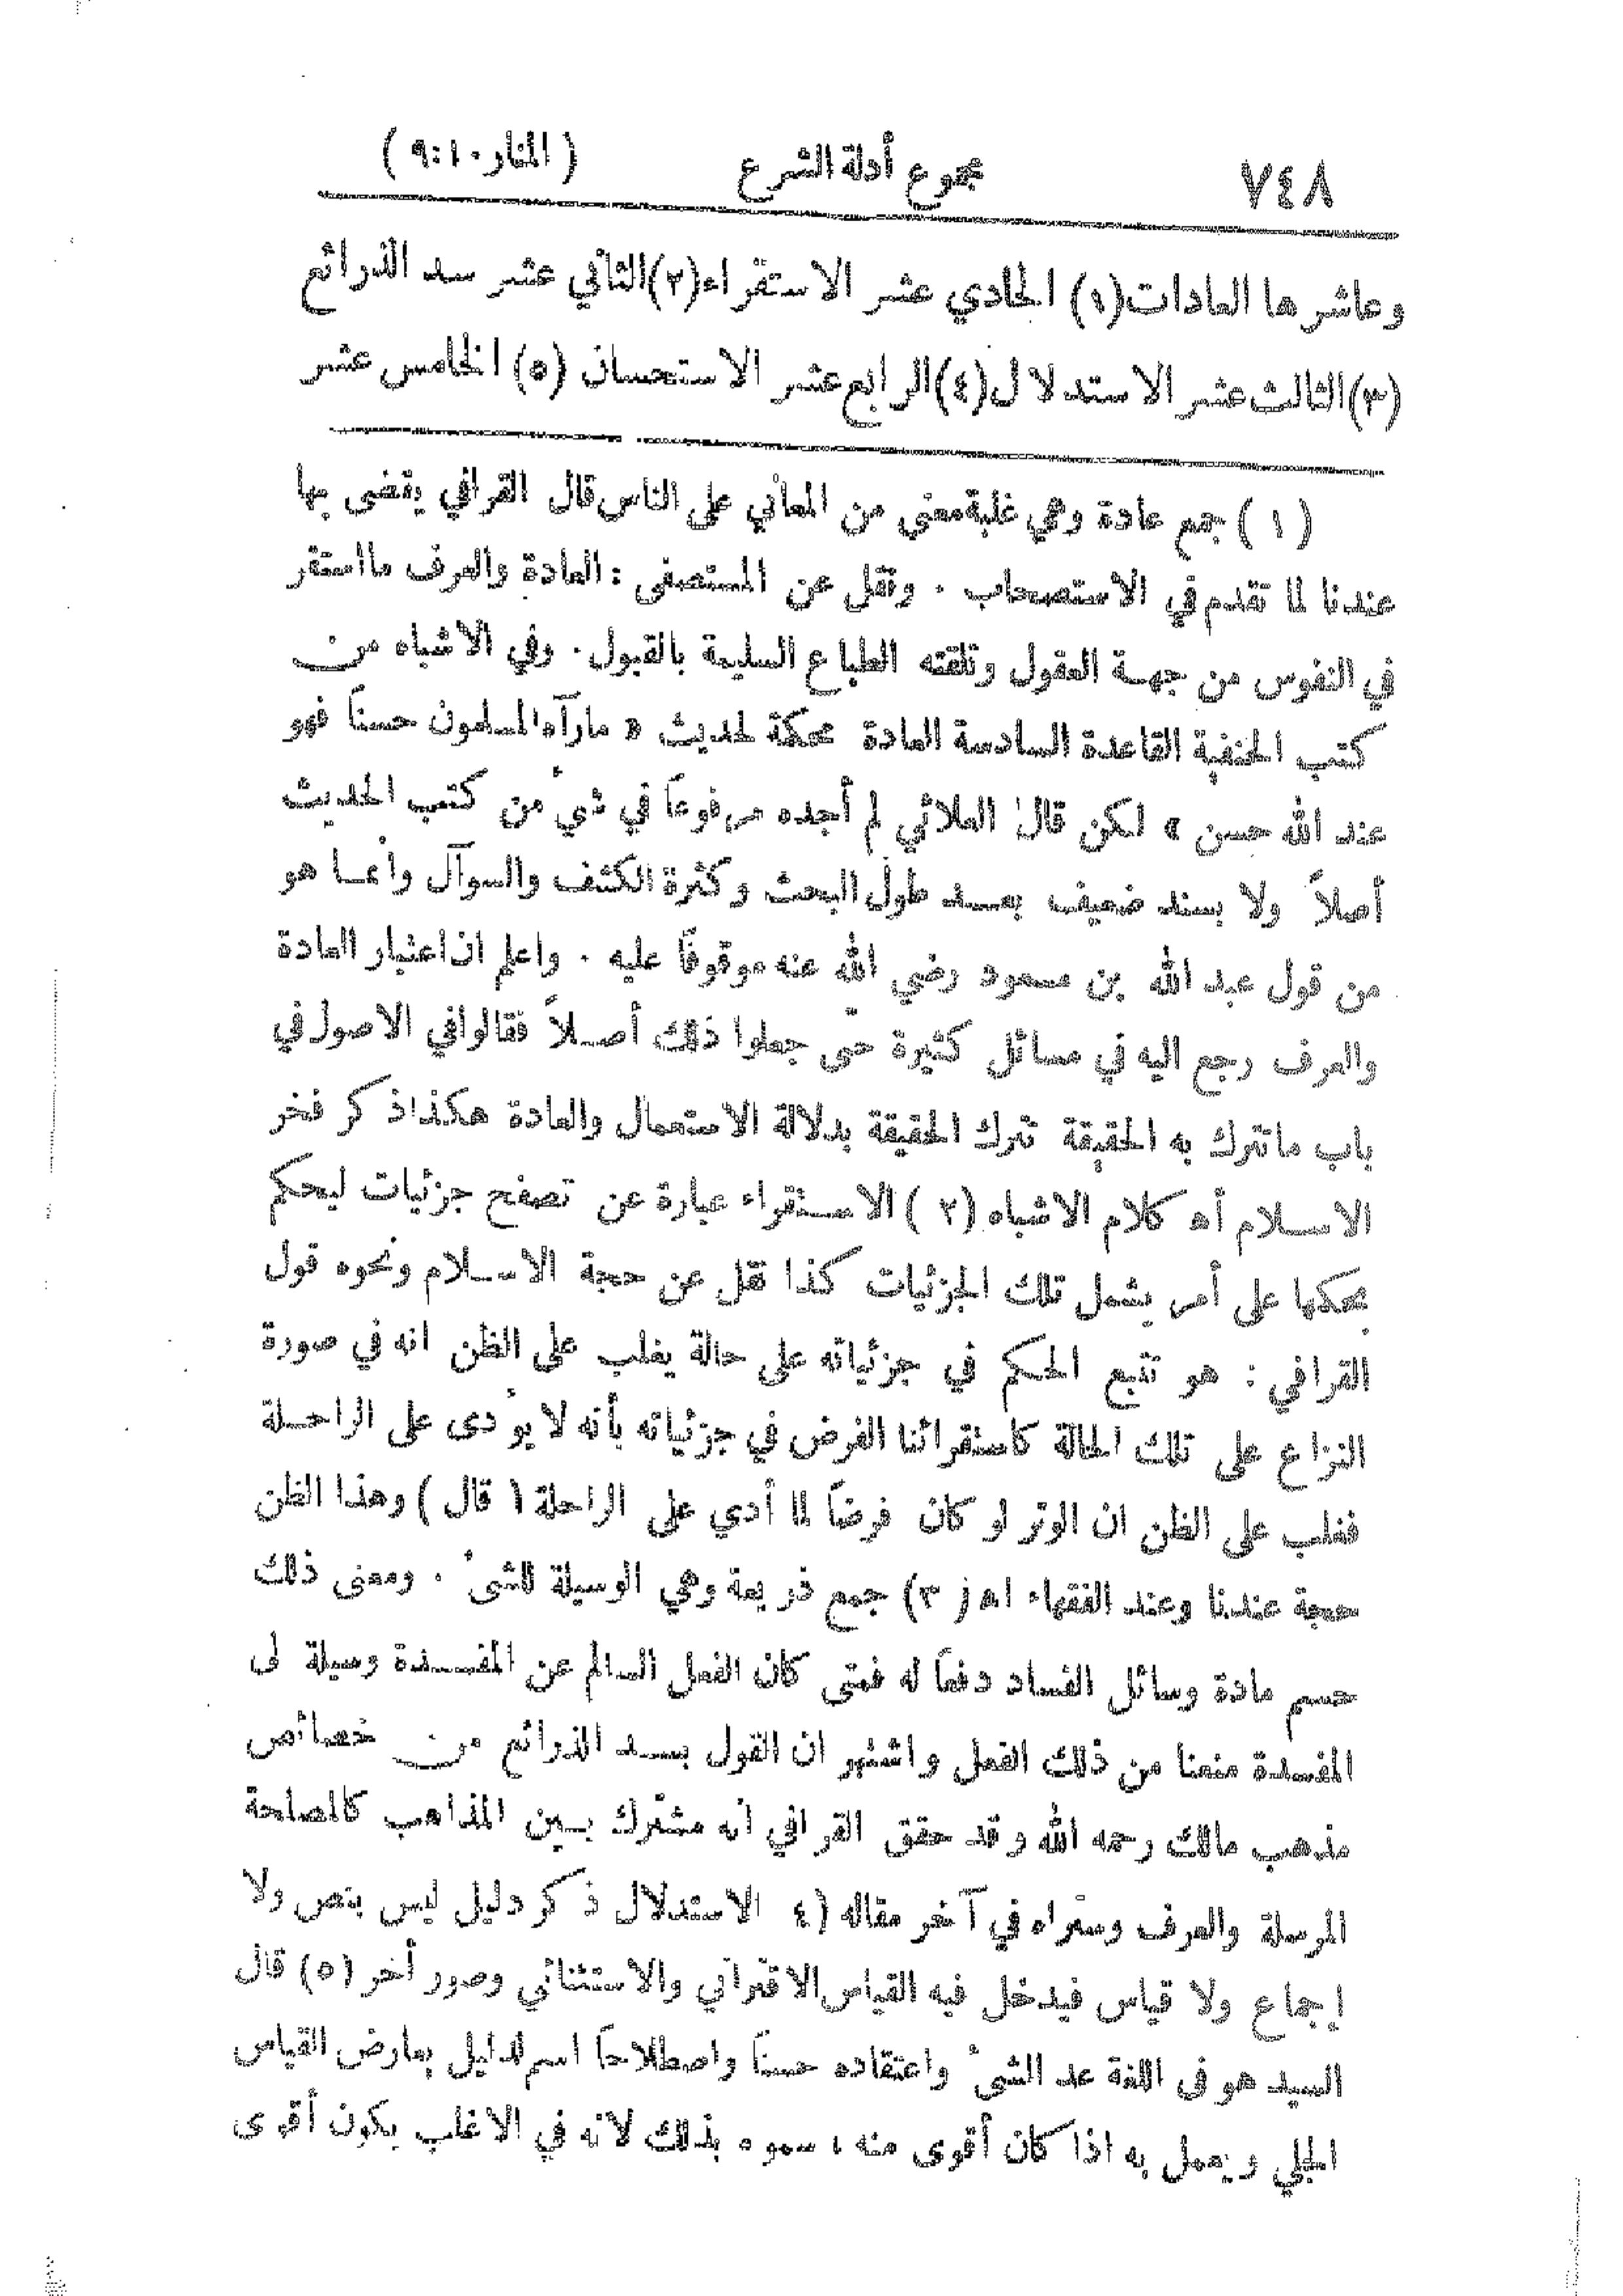 ٧٤٨ مجموع أدلة الشرع (المنار ١٠:٩)
وعاشرها العادات(١) الحادي عشر الاستقراء(٢)الثاني عشر سد الذرائع
(٣)الثالث عشر الاستدلال(٤)الرابع عشر الاستحسان (٥) الخامس عشر
(١) جمع عادة وهي غلبة معنى من المعاني على الناس قال القرافي يقضى بها
عندنا لما تقدم في الاستصحاب . ونقل عن المستصفى : العادة والعرف ما استقر
في النفوس من جهة العقول وتلقته الطباع السليمة بالقبول . وفي الاشباه من
كتب الحنفية القاعدة السادسة العادة محكمة لحديث « مارآه المسلمون حسناً فهو
عند الله حسن » لكن قال العلائي لم أجده مرفوعاً في شيء من كتب الحديث
أصلاً ولا بسند ضعيف بعد طول البحث وكثرة الكشف والسوآل وانما هو
من قول عبد الله بن مسعود رضي الله عنه موقوفاً عليه . واعلم ان اعتبار العادة
والعرف رجع اليه في مسائل كثيرة حتى جعلوا ذلك أصلاً فقالوا في الاصول في
باب ماتترك به الحقيقة تترك الحقيقة بدلالة الاستعمال والعادة هكذا ذكر فخر
الاسلام أه كلام الاشباه (٢) الاستقراء عبارة عن تصفح جزئيات ليحكم
بحكمها على أمر يشمل تلك الجزئيات كذا نقل عن حجة الاسلام ونحوه قول
القرافي : هو تتبع الحكم في جزئياته على حالة يغلب على الظن انه في صورة
النزاع على تلك الحالة كاستقرائنا الفرض في جزئياته بأنه لا يوءدى على الراحلة
فغلب على الظن ان الوتر لو كان فرضاً لما أدي على الراحلة ( قال ) وهذا الظن
حجة عندنا وعند الفقهاء اه ( ٣) جمع ذريعة وهي الوسيلة للشيء . ومعنى ذلك
حسم مادة وسائل الفساد دفعاً له فمتى كان الفعل السالم عن المفسدة وسيلة لى
المفسدة منعنا من ذلك الفعل واشتهر ان القول بسد الذرائع من خصائص
مذهب مالك رحمه الله وقد حقق القرافي انه مشترك بين المذاهب كالمصلحة
المرسلة والعرف وستراه في آخر مقاله (٤ الاستدلال ذكر دليل ليس بنص ولا
إجماع ولا قياس فيدخل فيه القياس الاقتراني والاستثنائي وصور أخر (٥) قال
السيد هو في اللغة عد الشيء واعتقاده حسناً واصطلاحاً اسم لدليل يعارض القياس
الجلي ويعمل به اذا كان أقوى منه ، سموه بذلك لانه في الاغلب يكون أقوى